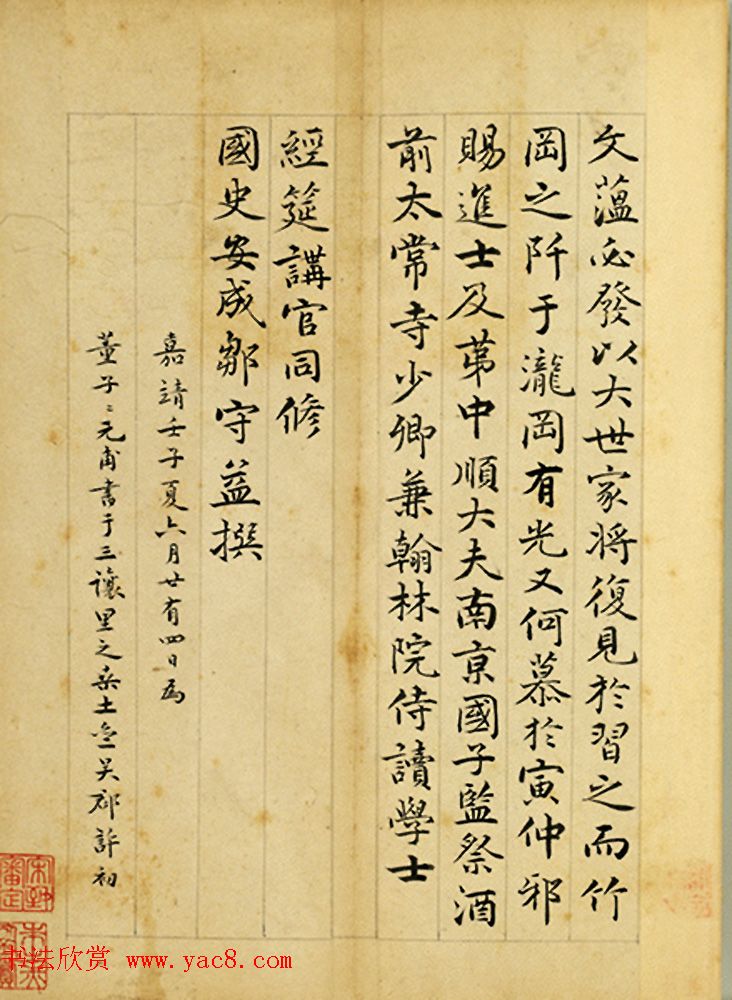 文薀必發以大世家將復見於習之而竹
岡之阡于瀧岡有光又何慕於寅仲邪
賜進士及第中順大夫南京國子監祭酒
前太常寺少卿兼翰林院侍讀學士
經筵講官同修
國史安成鄒守益撰
嘉靖壬子夏六月廿有四日為
董子〻元甫書于三讓里之桒土 吴郡許初
书法欣赏 www.yac8.com